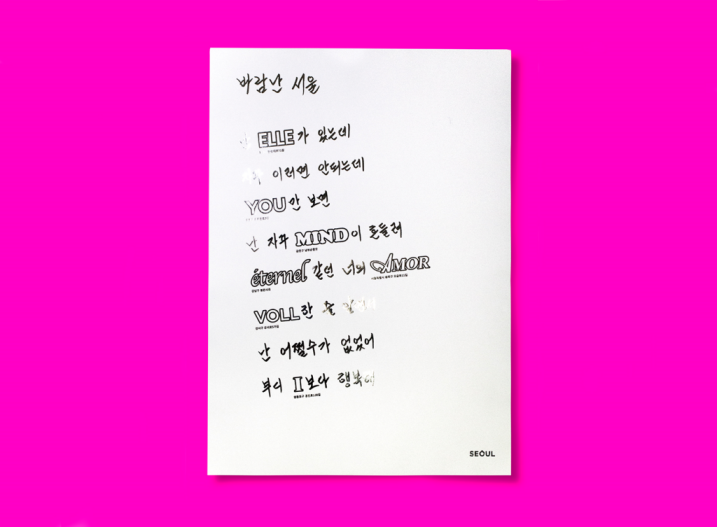 바람난 서울
ELLE가 있는데
이러면 안되는데
YOU만 보면
난 자꾸 MIND이 흔들려
éternel 같던 너의 AMOR
VOLL한 술
난 어쩔수가 없었어
부디 I보다 행복해
SEOUL